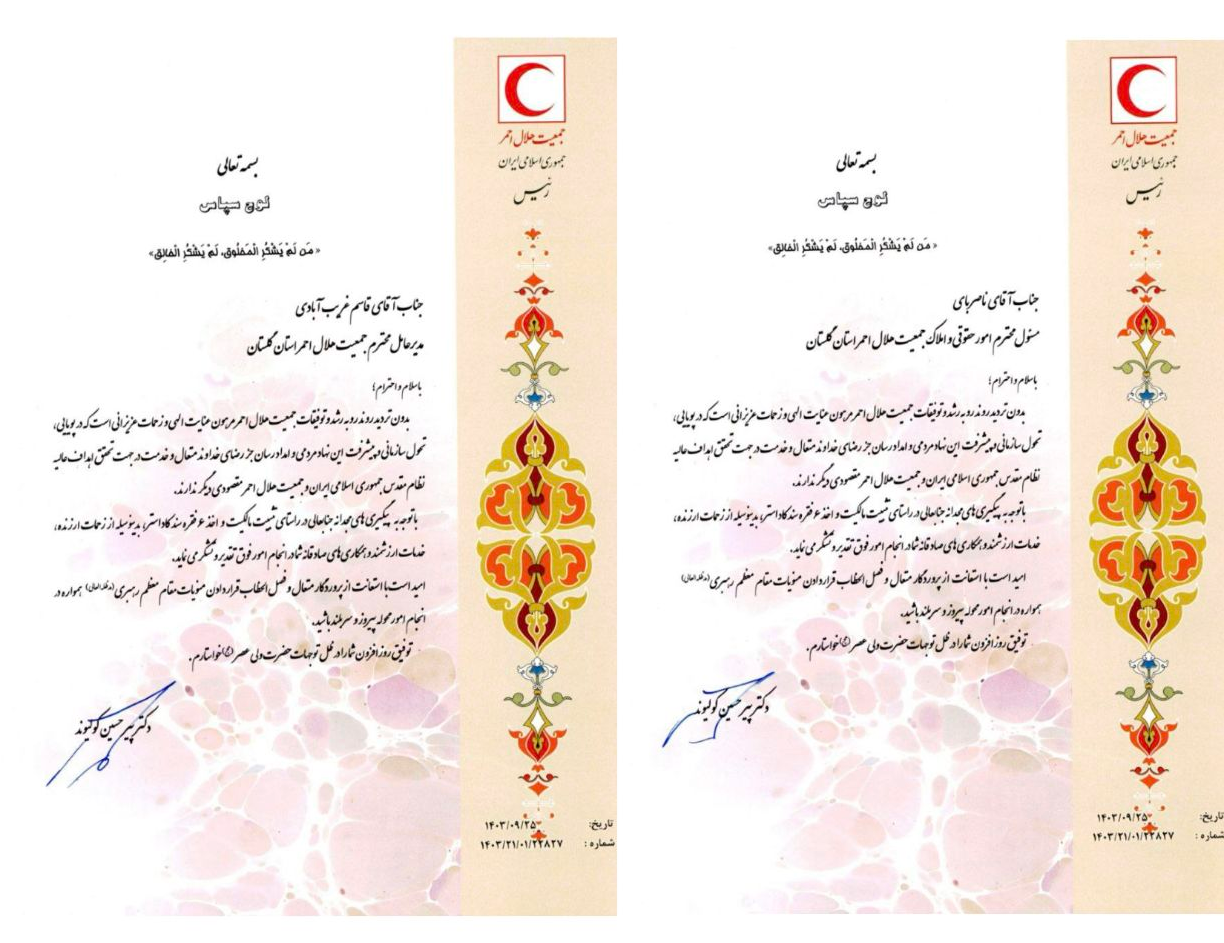 جمعیت هلال احمر
جمهوری اسلامی ایران
رئیس
بسمه تعالی
لوح سپاس
«مَن لَمْ یَشْکُرِ الْمَخْلُوق، لَمْ یَشْکُرِ الْخالِق»
جناب آقای ناصر بای
مسئول محترم امور حقوقی و املاک جمعیت هلال احمر استان گلستان
باسلام و احترام؛
بدون تردید روند رو به رشد و توفیقات جمعیت هلال احمر مرهون عنایت الهی و زحمات عزیزانی است که در پویایی،
تحول سازمانی و پیشرفت این نهاد مردمی و امدادرسان جز رضای خداوند متعال و خدمت در جهت تحقق اهداف عالیه
نظام مقدس جمهوری اسلامی ایران و جمعیت هلال احمر مقصودی دیگر ندارند.
باتوجه به پیگیری های مجدانه جنابعالی در راستای تثبیت مالکیت و اخذ ۶ فقره سند کاداستر، بدینوسیله از زحمات ارزنده،
خدمات ارزشمند و همکاری های صادقانه شما در انجام امور فوق تقدیر و تشکر می نماید.
امید است با استعانت از پروردگار متعال و فصل الخطاب قرار دادن منویات مقام معظم رهبری (مدظله العالی)
همواره در انجام امور محوله پیروز و سربلند باشید.
توفیق روزافزون شما را در ظل توجهات حضرت ولی عصر (عج) خواستارم.
دکتر پیرحسین کولیوند
تاریخ: ۱۴۰۳/۰۹/۲۵
شماره: ۱۴۰۳/۲۱/۰۱/۲۲۸۲۷
جمعیت هلال احمر
جمهوری اسلامی ایران
رئیس
بسمه تعالی
لوح سپاس
«مَن لَمْ یَشْکُرِ الْمَخْلُوق، لَمْ یَشْکُرِ الْخالِق»
جناب آقای قاسم غریب آبادی
مدیرعامل محترم جمعیت هلال احمر استان گلستان
باسلام و احترام؛
بدون تردید روند رو به رشد و توفیقات جمعیت هلال احمر مرهون عنایت الهی و زحمات عزیزانی است که در پویایی،
تحول سازمانی و پیشرفت این نهاد مردمی و امدادرسان جز رضای خداوند متعال و خدمت در جهت تحقق اهداف عالیه
نظام مقدس جمهوری اسلامی ایران و جمعیت هلال احمر مقصودی دیگر ندارند.
باتوجه به پیگیری های مجدانه جنابعالی در راستای تثبیت مالکیت و اخذ ۶ فقره سند کاداستر، بدینوسیله از زحمات ارزنده،
خدمات ارزشمند و همکاری های صادقانه شما در انجام امور فوق تقدیر و تشکر می نماید.
امید است با استعانت از پروردگار متعال و فصل الخطاب قرار دادن منویات مقام معظم رهبری (مدظله العالی) همواره در
انجام امور محوله پیروز و سربلند باشید.
توفیق روزافزون شما را در ظل توجهات حضرت ولی عصر (عج) خواستارم.
دکتر پیرحسین کولیوند
تاریخ: ۱۴۰۳/۰۹/۲۵
شماره: ۱۴۰۳/۲۱/۰۱/۲۲۸۲۷